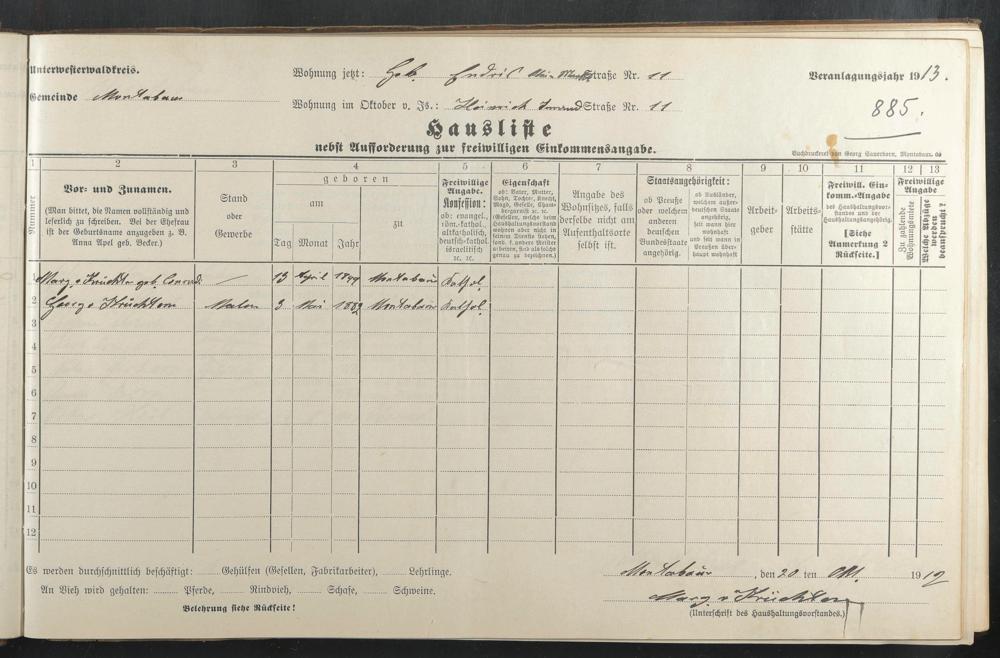 Unterwesterwaldkreis.
Wohnung jetzt: Geb. Straße Nr. 11
Veranlagungsjahr 1913.
Gemeinde Montabaur
Wohnung im Oktober v. Js.: Heinrich Straße Nr. 11
885.
Hausliste
nebst Aufforderung zur freiwilligen Einkommensangabe.
Buchdruckerei von Georg Sauerborn, Montabaur.
1 2 3 4 5 6 7 8 9 10 11 12 13
Nummer
Vor- und Zunamen.
(Man bittet, die Namen vollständig und
leserlich zu schreiben. Bei der Ehefrau
ist der Geburtsname anzugeben z. B.
Anna Apel geb. Becker.)
Stand
oder
Gewerbe
geboren
am
zu
Tag Monat Jahr
Freiwillige
Angabe.
Konfession:
ob: evangel.,
röm.-kathol.,
altkatholisch,
deutsch-kathol.
israelitisch
ꝛc. ꝛc.
Eigenschaft
ob: Vater, Mutter,
Sohn, Tochter, Knecht,
Magd, Geselle, Cham-
bregarnist ꝛc. ꝛc.
(Gesellen, welche beim
Haushaltungsvorstand
wohnen aber nicht in
seinem Dienste stehen,
sond. f. andere Meister
arbeiten, sind als solche
genau zu bezeichnen.)
Angabe des
Wohnsitzes, falls
derselbe nicht am
Aufenthaltsorte
selbst ist.
Staatsangehörigkeit:
ob Preuße
oder welchem
anderen
deutschen
Bundesstaate
angehörig.
ob Ausländer,
welchem außer-
deutschen Staate
angehörig,
seit wann hier
wohnhaft
und seit wann in
Preußen über-
haupt wohnhaft
Arbeit-
geber
Arbeits-
stätte
Freiwill. Ein-
komm.-Angabe
des Haushaltungsvor-
standes und der
Haushaltungsangehörig.
[Siehe
Anmerkung 2
Rückseite.]
Freiwillige
Angabe
Zu zahlende
Wohnungsmiete
Welche Abzüge
werden
beansprucht?
1 Marg. v Krüchten geb. Conrad. — 13 April 1849 Montabaur Kathol.
2 Georg v Krüchten 3 Mai 1882 Montabaur Kathol.
3
4
5
6
7
8
9
10
11
12
Es werden durchschnittlich beschäftigt: Gehülfen (Gesellen, Fabrikarbeiter), Lehrlinge.
Montabaur, den 20. ten Okt. 1912
An Vieh wird gehalten: Pferde, Rindvieh, Schafe, Schweine.
Marg. v Krüchten
Belehrung siehe Rückseite!
(Unterschrift des Haushaltungsvorstandes.)